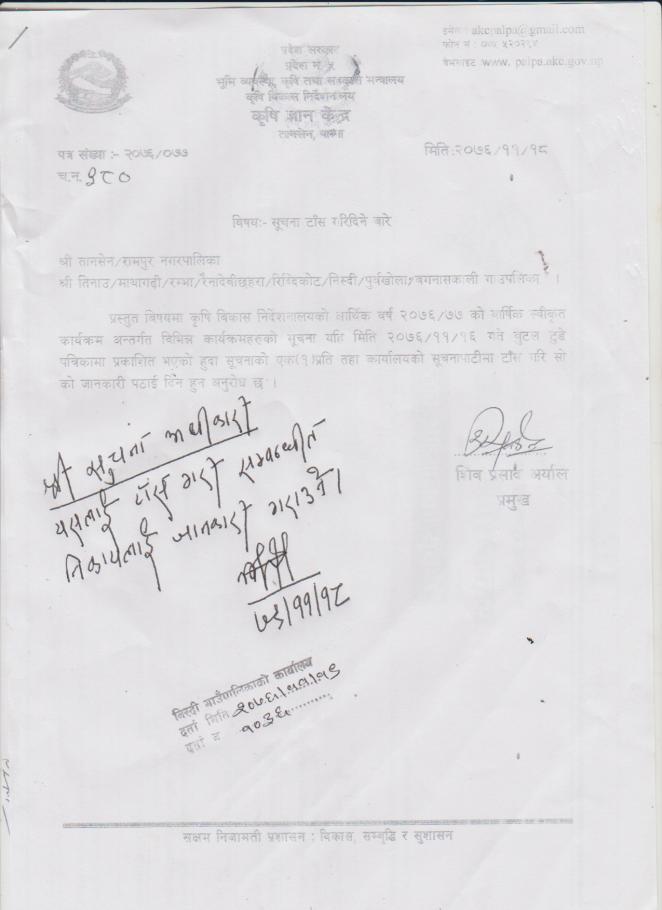 इमेल : akcpalpa@gmail.com
फोन नं : ०७५ ५२०२१४
वेभसाइट www. palpa.akc.gov.np
प्रदेश सरकार
प्रदेश नं. ५
भूमि व्यवस्था, कृषि तथा सहकारी मन्त्रालय
कृषि विकास निर्देशनालय
कृषि ज्ञान केन्द्र
तानसेन, पाल्पा
पत्र संख्या :- २०७६/०७७
मिति:२०७६/११/१८
च.नं. ९८०
विषय:- सूचना टाँस गरिदिने बारे
श्री तानसेन/रामपुर नगरपालिका
श्री तिनाउ/माथागढी/रम्भा/रैनादेवीछहरा/रिब्दिकोट/निस्दी/पुर्वखोला/बगनासकाली गाउपालिका ।
प्रस्तुत विषयमा कृषि विकास निर्देशनालयको आर्थिक वर्ष २०७६/७७ को वार्षिक स्वीकृत
कार्यक्रम अन्तर्गत विभिन्न कार्यक्रमहरुको सूचना यहि मिति २०७६/११/१६ गते बुटवल टुडे
पत्रिकामा प्रकाशित भएको हुदा सूचनाको एक(१)प्रति तहा कार्यालयको सूचनापाटीमा टाँस गरि सो
को जानकारी पठाई दिन हुन अनुरोध छ ।
शिव प्रसाद अर्याल
प्रमुख
श्री सुचना अधीकारी
यसलाई टाँस गरी सम्बन्धीत
निकायलाई जानकारी गराउने।
७६/११/१८
निस्दी गाउँपालिकाको कार्यालय
दर्ता मिति २०७६/११/१९
दर्ता नं १०३६
सक्षम निजामती प्रशासन : विकास, सम्बृद्धि र सुशासन